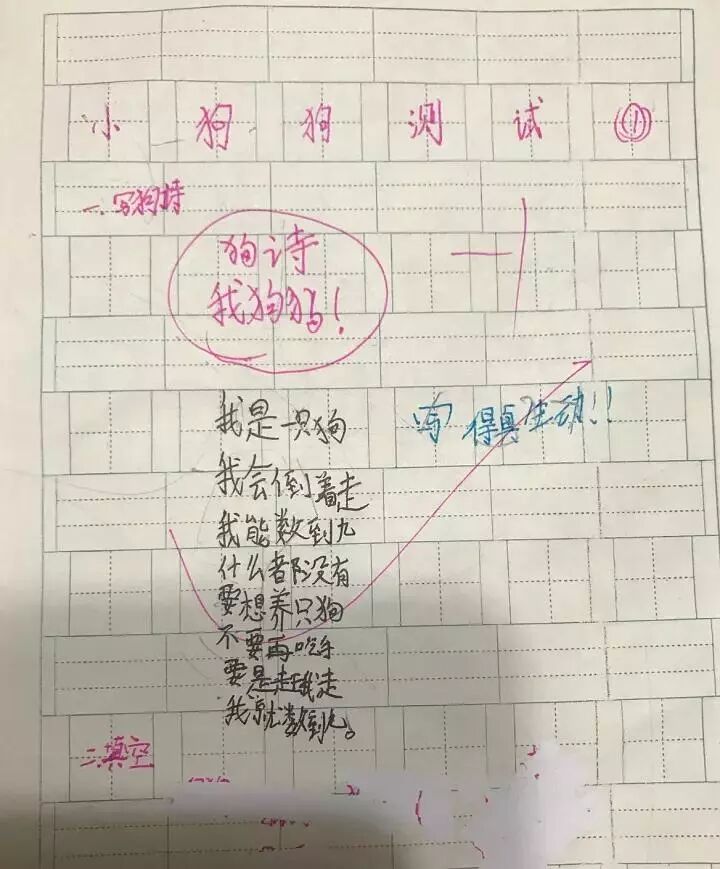 小狗狗测试①
一.写狗诗
狗诗
我狗狗!
我是一只狗
写得真生动!!
我会倒着走
我能数到九
什么都没有
要想养只狗
不要再吃手
要是赶我走
我就数到九。
二.填空